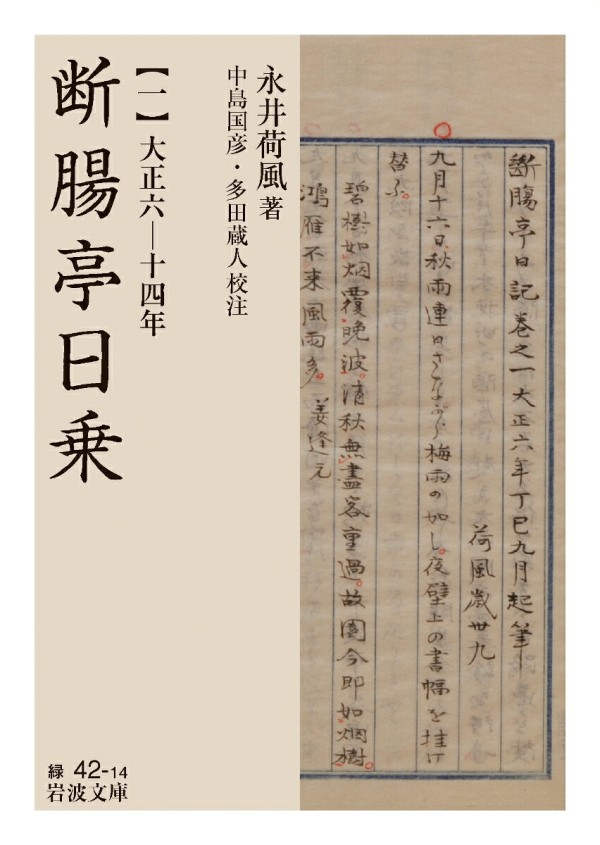 断腸亭日乗
【一】大正六―十四年
永井荷風著
中島国彦・多田蔵人校注
緑 42-14
岩波文庫
断膓亭日記巻之一大正六年丁巳九月起筆
荷風歳卅九
九月十六日、秋雨連日さながら梅雨の如し。夜壁上の書幅を挂け
替ふ。
碧樹如烟覆晩波。清秋無盡客重過。故園今即如烟樹。
鴻雁不来風雨多。 姜逢元